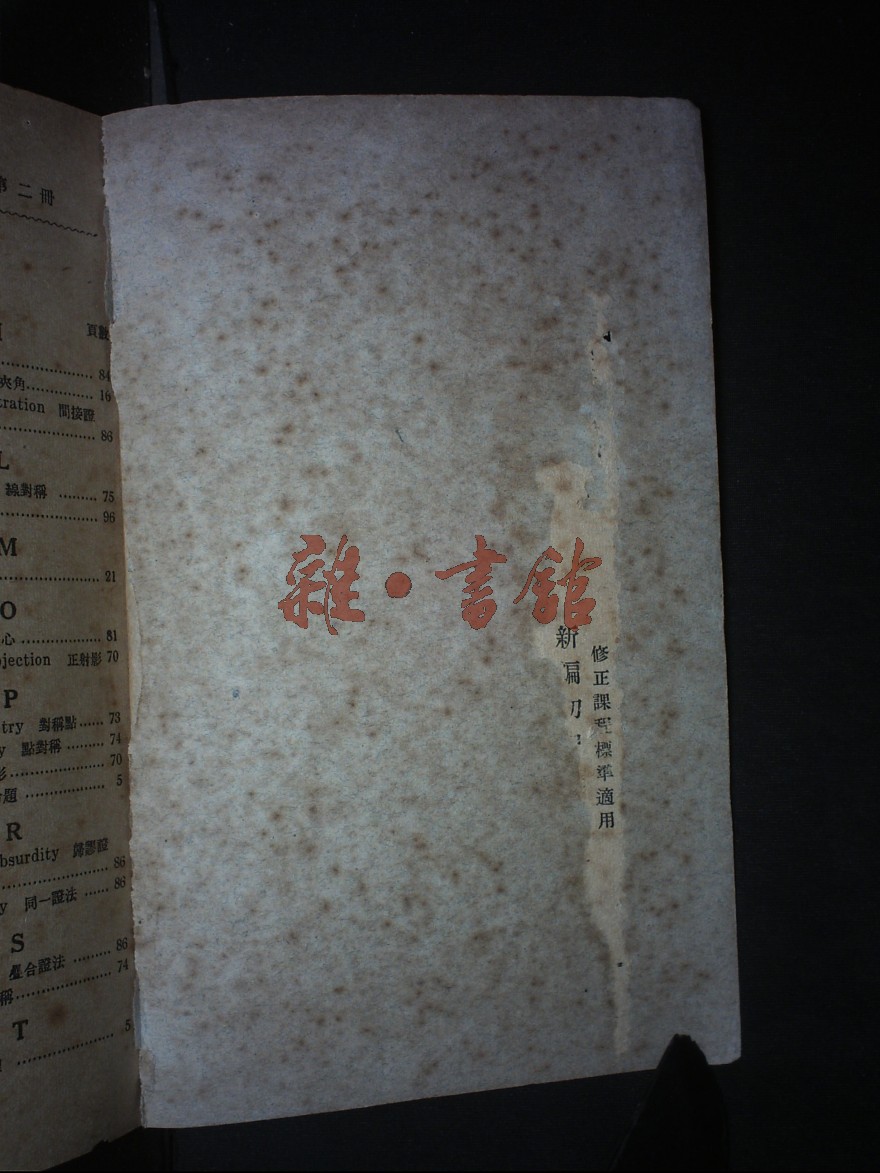 第二冊
頁數
84
夾角 ............ 16
tration 間接證
86
L
線對稱 ......... 75
96
M
21
O
心 ............ 81
ojection 正射影 70
P
try 對稱點 ...... 73
y 點對稱 ......... 74
影 ............ 70
題 ............ 5
R
bsurdity 歸謬證
86
y 同一證法 ...... 86
S
86
疊合證法 .........
稱 ............ 74
T
5
雜·書館
修正課程標準適用
新編初